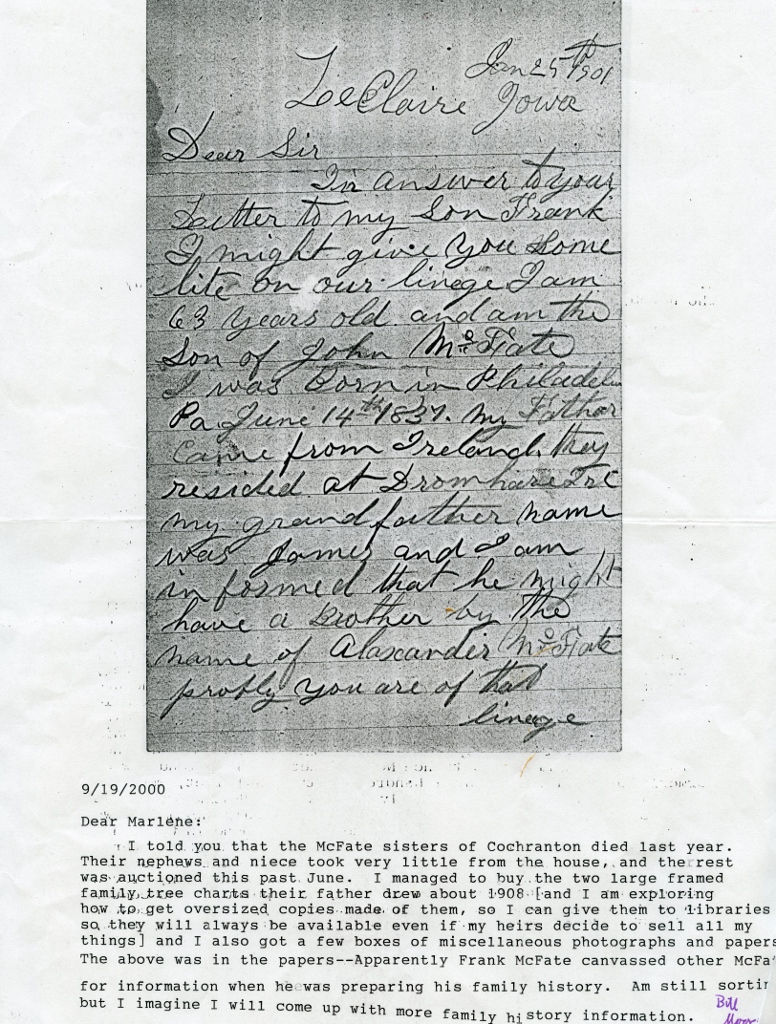 Jan 25th 1901
LeClaire Iowa
Dear Sir
In answer to your
Letter to my Son Frank
I might give you Some
lite on our linege I am
63 years old and am the
Son of John McFate
I was Born in Philadel
Pa June 14th 1837. my Father
Came from Ireland. they
resided at Dromhare Ire
my grandfather name
was James and I am
informed that he might
have a Brother by the
name of Alaxander McFate
probly you are of that
linege
9/19/2000
Dear Marlene:
I told you that the McFate sisters of Cochranton died last year.
Their nephews and niece took very little from the house, and the rest
was auctioned this past June. I managed to buy the two large framed
family tree charts their father drew about 1908 [and I am exploring
how to get oversized copies made of them, so I can give them to libraries
so they will always be available even if my heirs decide to sell all my
things] and I also got a few boxes of miscellaneous photographs and papers
The above was in the papers--Apparently Frank McFate canvassed other McFa
for information when he was preparing his family history. Am still sortin
but I imagine I will come up with more family history information.
Bill
Moor